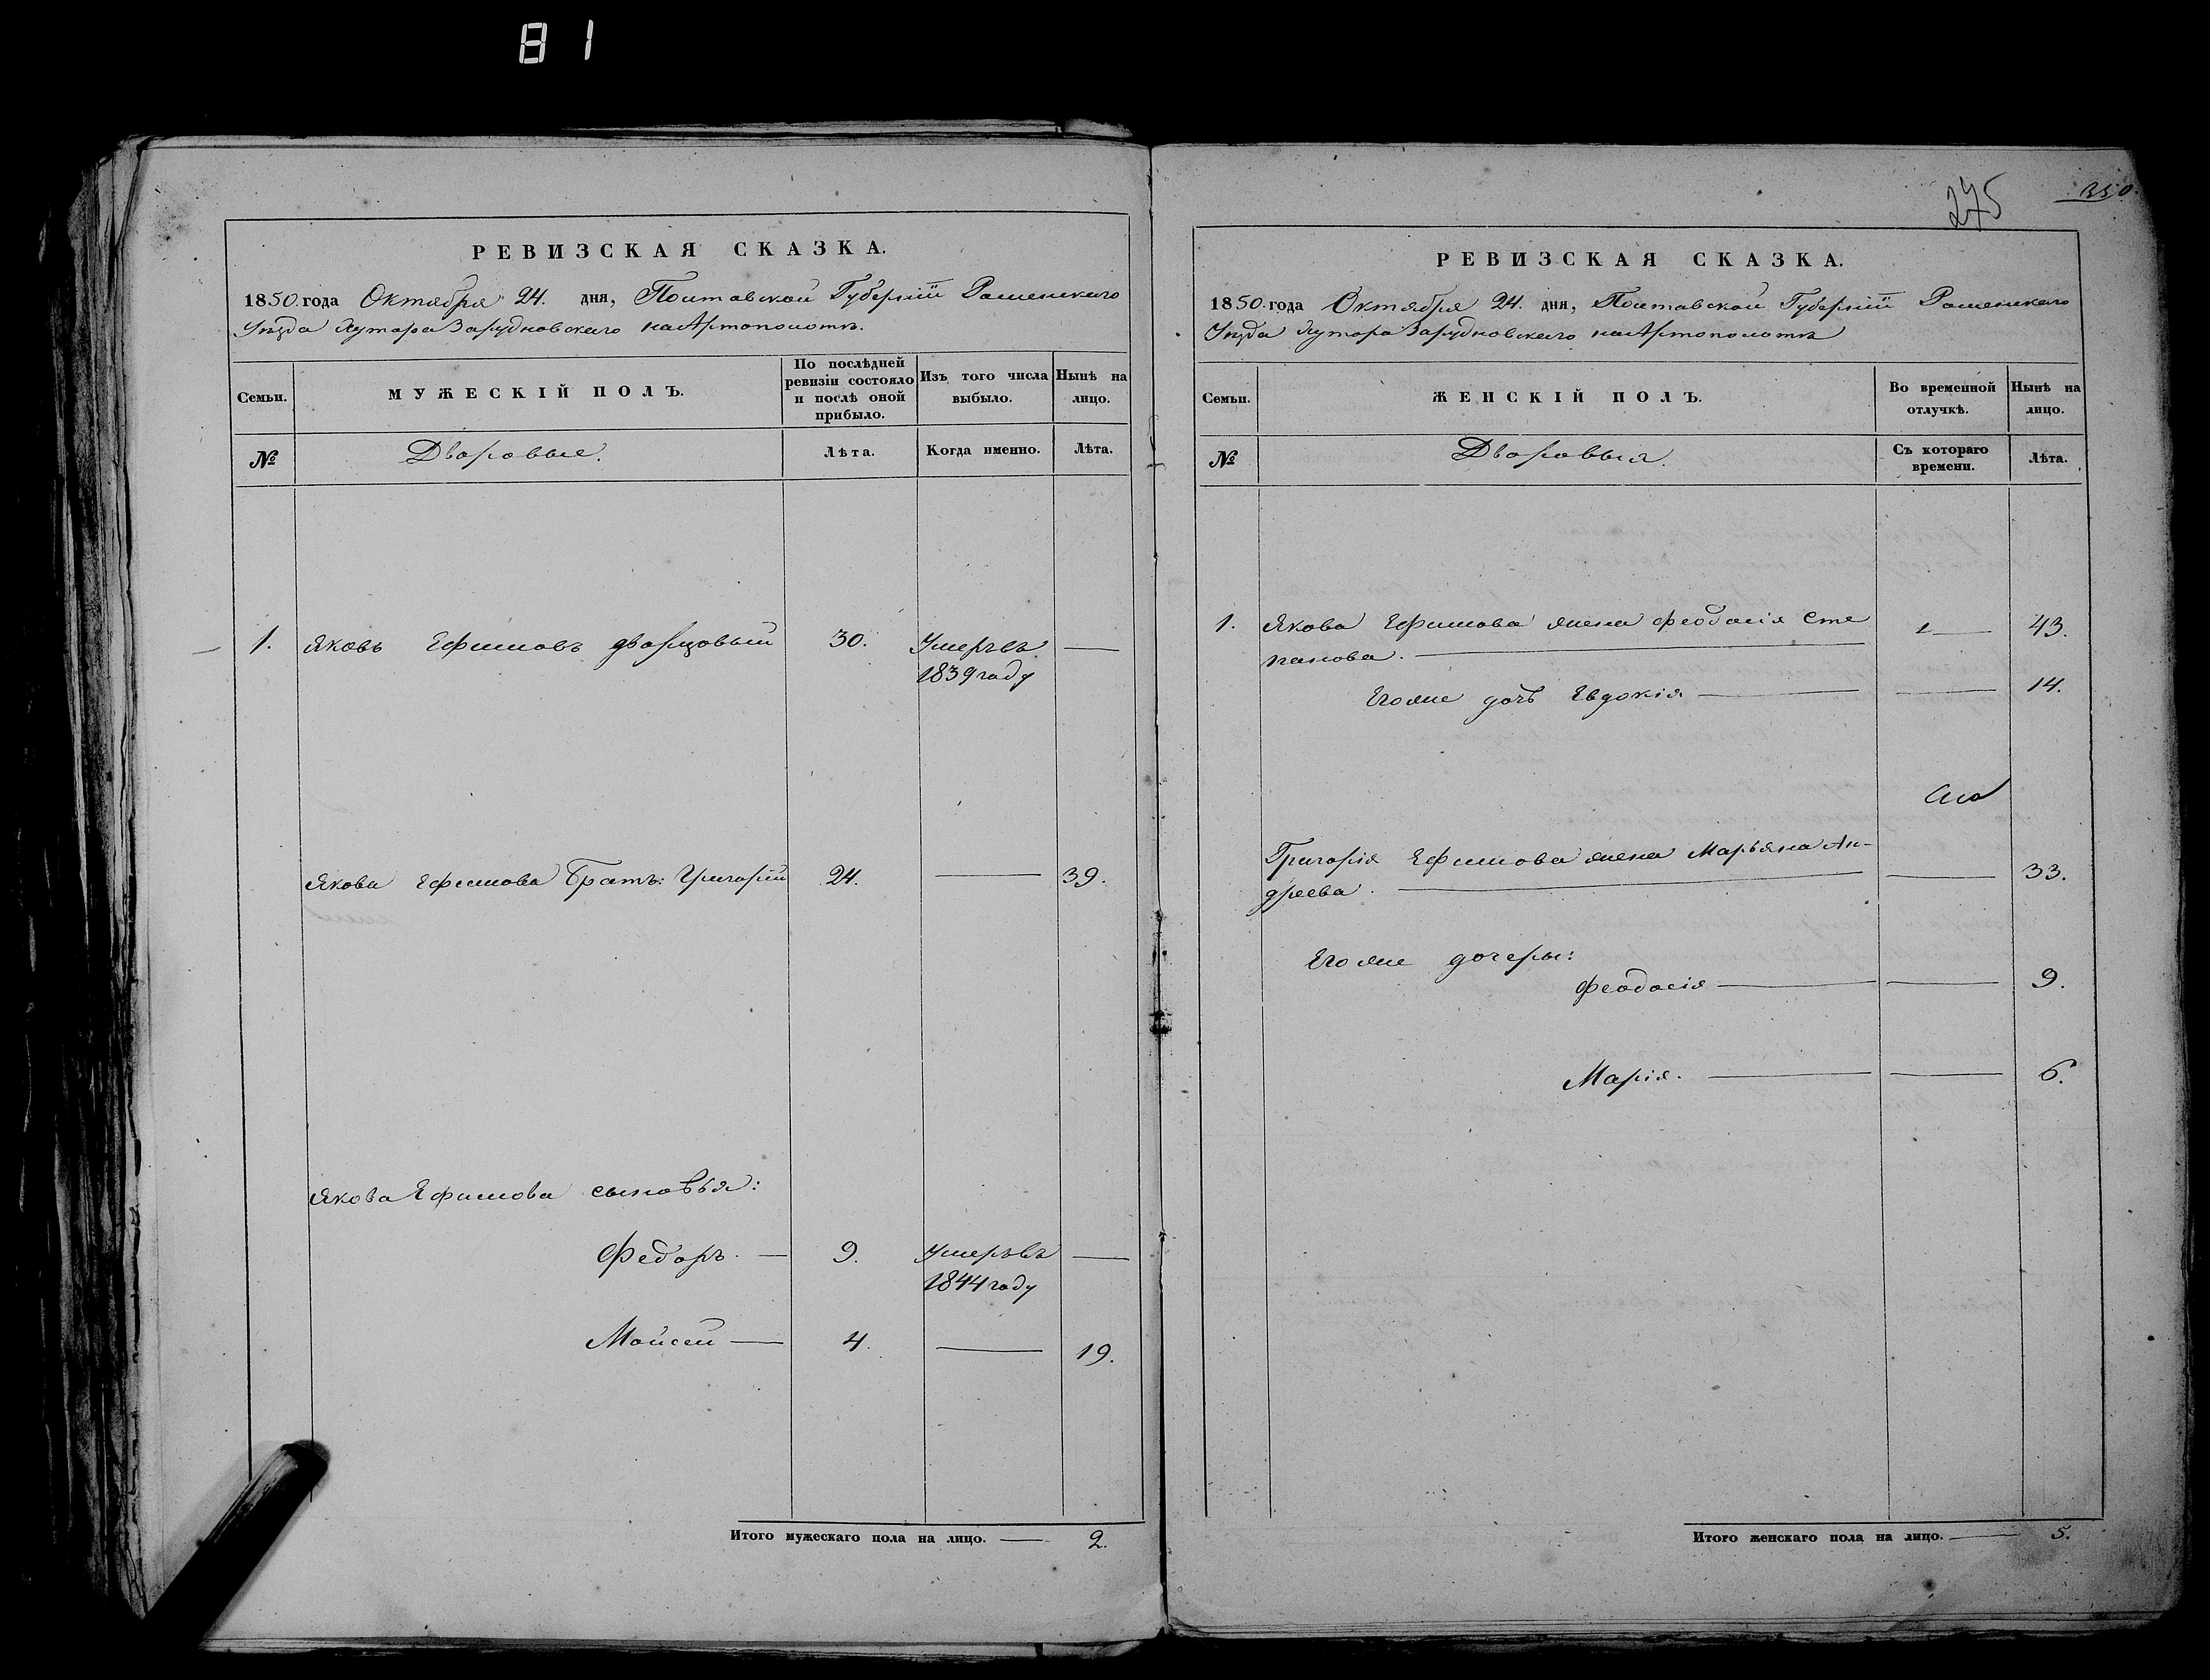 81
РЕВИЗСКАЯ СКАЗКА.
1850. года Октября 24. дня, Полтавской Губернїи Роменскаго
Уѣзда Хутора Зарудновскаго на Артополотѣ.
Семьи.
МУЖЕСКІЙ ПОЛЪ.
По послѣдней ревизіи состояло и послѣ оной прибыло.
Изъ того числа выбыло.
Нынѣ на лицо.
№
Дворовые.
Лѣта.
Когда именно.
Лѣта.
1. Яковъ Ефимовъ 30. Умеръ въ —
1839 году
Якова Ефимова Братъ: Григорій 24. — 39.
Якова Ефимова сыновья:
Федоръ. — 9. Умеръ въ —
1844 году
Мойсей — 4. — 19.
Итого мужескаго пола на лицо. — 2.
275
350.
РЕВИЗСКАЯ СКАЗКА.
1850. года Октября 24. дня, Полтавской Губернїи Роменскаго
Уѣзда Хутора Зарудновскаго на Артополотѣ
Семьи.
ЖЕНСКІЙ ПОЛЪ.
Во временной отлучкѣ.
Нынѣ на лицо.
№
Дворовыя.
Съ котораго времени.
Лѣта.
1. Якова Ефимова жена Феодосія Сте — 43.
панова. —
Его же дочь Евдокія — — 14.
Григорія Ефимова жена Марьяна Ан-
дреева. — — 33.
Его же дочеры:
Феодосія — — 9.
Марія. — — 6.
Итого женскаго пола на лицо. — 5.